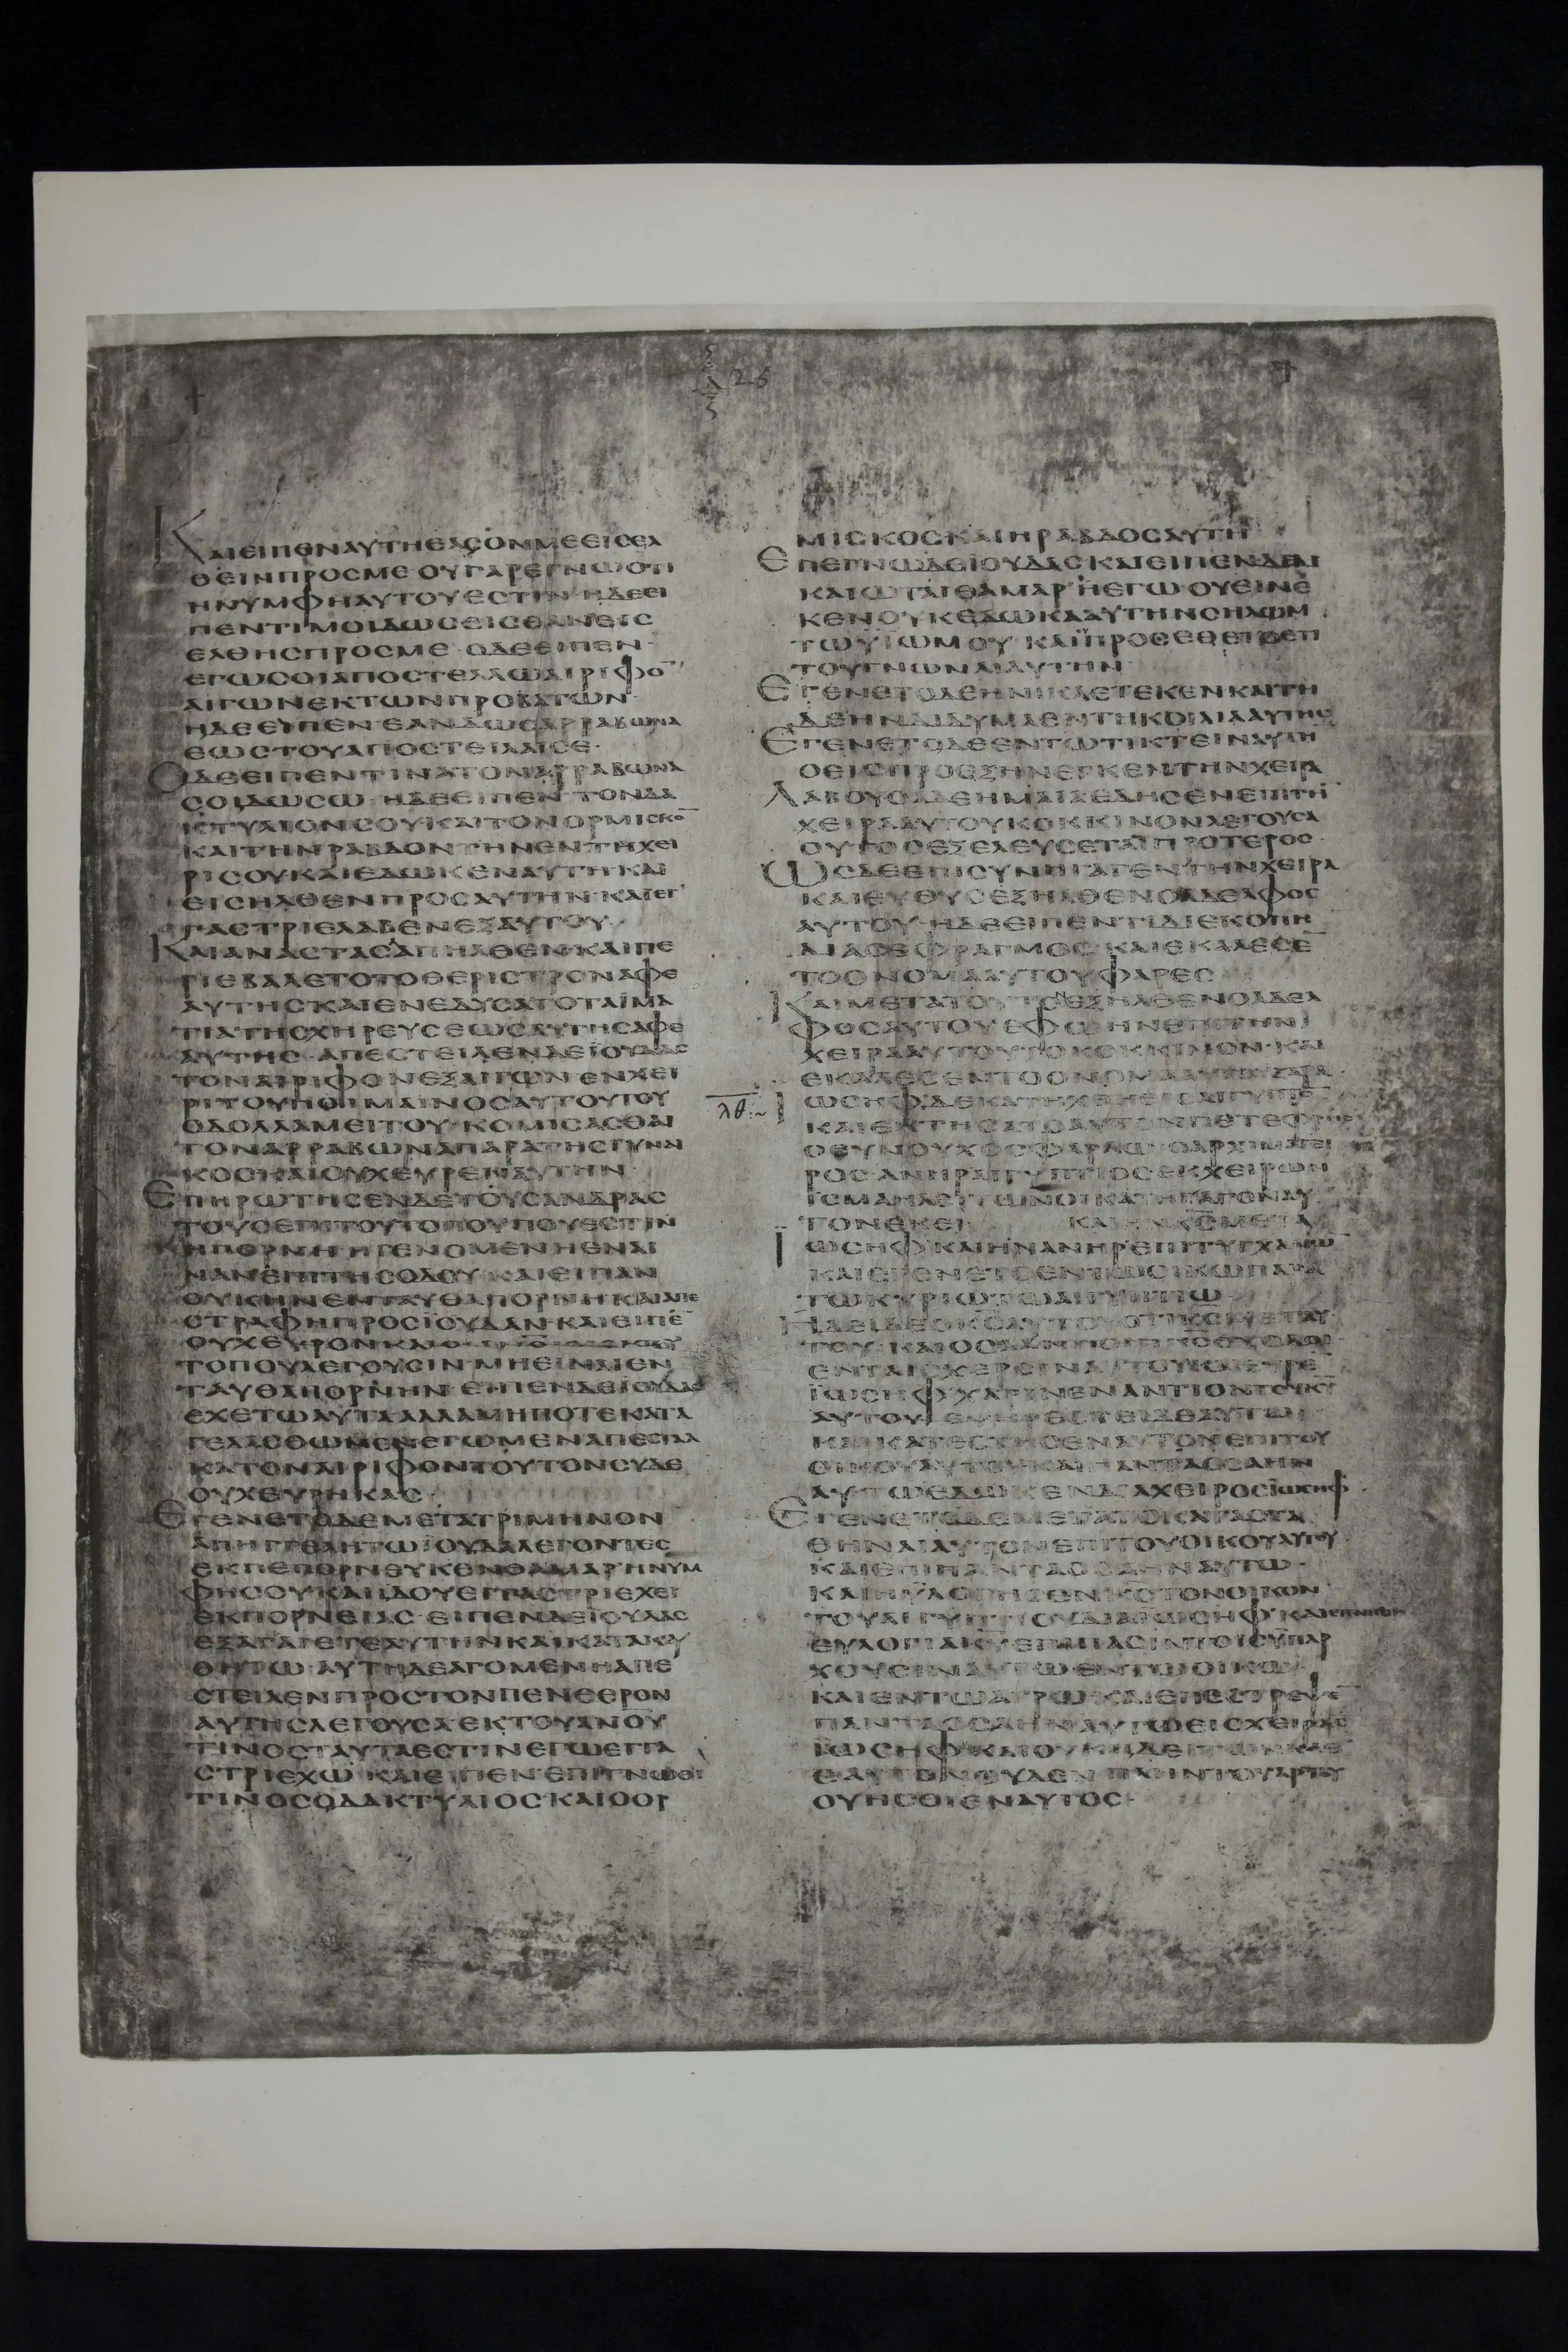 25
ΚΑΙΕΙΠΕΝΑΥΤΗΕΑCΟΝΜΕΕΙCΕΛ
ΘΕΙΝΠΡΟCΜΕ ΟΥΓΑΡΕΓΝΩΟΤΙ
ΗΝΥΜΦΗΑΥΤΟΥΕCΤΙΝ·ΗΔΕΕΙ
ΠΕΝΤΙΜΟΙΔΩCΕΙCΕΑΝΕΙC
ΕΛΘΗCΠΡΟCΜΕ·ΟΔΕΕΙΠΕΝ·
ΕΓΩCΟΙΑΠΟCΤΕΛΛΩΑΙΡΙΦΟ̅
ΑΙΓΩΝΕΚΤΩΝΠΡΟΒΑΤΩΝ·
ΗΔΕΕΙΠΕΝ·ΕΑΝΔΩCΑΡΡΑΒΩΝΑ
ΕΩCΤΟΥΑΠΟCΤΕΙΛΑΙCΕ·
ΟΔΕΕΙΠΕΝΤΙΝΑΤΟΝΑΡΡΑΒΩΝΑ
CΟΙΔΩCΩ·ΗΔΕΕΙΠΕΝ ΤΟΝΔΑ
ΚΤΥΛΙΟΝCΟΥΚΑΙΤΟΝΟΡΜΙCΚΟ̅
ΚΑΙΤΗΝΡΑΒΔΟΝΤΗΝΕΝΤΗΧΕΙ
ΡΙCΟΥΚΑΙΕΔΩΚΕΝΑΥΤΗΚΑΙ
ΕΙCΗΛΘΕΝΠΡΟCΑΥΤΗΝ·ΚΑΙΕΓ
ΓΑCΤΡΙΕΛΑΒΕΝΕΞΑΥΤΟΥ·
ΚΑΙΑΝΑCΤΑCΑΠΗΛΘΕΝΚΑΙΠΕ
ΡΙΕΒΑΛΕΤΟΤΟΘΕΡΙCΤΡΟΝΑΦΕ
ΑΥΤΗCΚΑΙΕΝΕΔΥCΑΤΟΤΑΪΜΑ
ΤΙΑΤΗCΧΗΡΕΥCΕΩCΑΥΤΗCΑΦΕ
ΑΥΤΗC·ΑΠΕCΤΕΙΛΕΝΔΕΪΟΥΔΑC
ΤΟΝΑΙΡΙΦΟΝΕΞΑΙΓΩΝ ΕΝΧΕΙ
ΡΙΤΟΥΠΟΙΜΑΙΝΟCΑΥΤΟΥΤΟΥ
ΟΔΟΛΛΑΜΕΙΤΟΥ·ΚΟΜΙCΑCΘΑΙ
ΤΟΝΑΡΡΑΒΩΝΑΠΑΡΑΤΗCΓΥΝΑΙ
ΚΟCΚΑΙΟΥΧΕΥΡΕΝΑΥΤΗΝ·
ΕΠΗΡΩΤΗCΕΝΔΕΤΟΥCΑΝΔΡΑC
ΤΟΥCΕΠΙΤΟΥΤΟΠΟΥΠΟΥΕCΤΙΝ
ΗΠΟΡΝΗ·ΗΓΕΝΟΜΕΝΗΕΝΑΙ
ΝΑΝΕΠΙΤΗCΟΔΟΥ·ΚΑΙΕΙΠΑΝ
ΟΥΚΗΝΕΝΤΑΥΘΑΠΟΡΝΗ·ΚΑΙΑΠΕ
CΤΡΑΦΗΠΡΟCΪΟΥΔΑΝ·ΚΑΙΕΙΠΕ̅
ΟΥΧΕΥΡΟΝΚΑΙ
ΤΟΠΟΥΛΕΓΟΥCΙΝ·ΜΗΕΙΝΑΙΕΝ
ΤΑΥΘΑΠΟΡΝΗΝ·ΕΙΠΕΝΔΕΪΟΥΔΑC
ΕΧΕΤΩΑΥΤΑΑΛΛΑΜΗΠΟΤΕΚΑΤΑ
ΓΕΛΑCΘΩΜΕΝ·ΕΓΩΜΕΝΑΠΕCΤΑΛ
ΚΑΤΟΝΑΙΡΙΦΟΝΤΟΥΤΟΝCΥΔΕ
ΟΥΧΕΥΡΗΚΑC·
ΕΓΕΝΕΤΟΔΕΜΕΤΑΤΡΙΜΗΝΟΝ
ΑΠΗΓΓΕΛΗΤΩΪΟΥΔΑΛΕΓΟΝΤΕC
ΕΚΠΕΠΟΡΝΕΥΚΕΝΘΑΜΑΡΗΝΥΜ
ΦΗCΟΥ·ΚΑΙΪΔΟΥΕΓΓΑCΤΡΙΕΧΕΙ
ΕΚΠΟΡΝΕΙΑC·ΕΙΠΕΝΔΕΪΟΥΔΑC
ΕΞΑΓΑΓΕΤΕΑΥΤΗΝΚΑΙΚΑΤΑΚΑΥ
ΘΗΤΩ·ΑΥΤΗΔΕΑΓΟΜΕΝΗΑΠΕ
CΤΕΙΛΕΝΠΡΟCΤΟΝΠΕΝΘΕΡΟΝ
ΑΥΤΗCΛΕΓΟΥCΑ·ΕΚΤΟΥΑΝΟΥ
ΤΙΝΟCΤΑΥΤΑΕCΤΙΝΕΓΩΕΓΓΑ
CΤΡΙΕΧΩ·ΚΑΙΕΙΠΕΝ·ΕΠΙΓΝΩΘΙ
ΤΙΝΟCΟΔΑΚΤΥΛΙΟCΚΑΙΟΟΡ
ΜΙCΚΟCΚΑΙΗΡΑΒΔΟCΑΥΤΗ
ΕΠΕΓΝΩΔΕΪΟΥΔΑCΚΑΙΕΙΠΕΝΔΕΔΙ
ΚΑΙΩΤΑΙΘΑΜΑΡΗΕΓΩ ΟΥΕΙΝΕ
ΚΕΝΟΥΚΕΔΩΚΑΑΥΤΗΝCΗΛΩΜ
ΤΩΥΪΩΜΟΥ ΚΑΙΠΡΟCΕΘΕΤΟΕΤΙ
ΤΟΥΓΝΩΝΑΙΑΥΤΗΝ·
ΕΓΕΝΕΤΟΔΕΗΝΙΚΑΕΤΕΚΕΝΚΑΙΤΗ
ΔΕΗΝΔΙΔΥΜΑΕΝΤΗΚΟΙΛΙΑΑΥΤΗC
ΕΓΕΝΕΤΟΔΕΕΝΤΩΤΙΚΤΕΙΝΑΥΤΗ
ΟΕΙCΠΡΟΕΞΗΝΕΓΚΕΝΤΗΝΧΕΙΡΑ
ΛΑΒΟΥCΑΔΕΗΜΑΙΑΕΔΗCΕΝΕΠΙΤΗ
ΧΕΙΡΑΑΥΤΟΥΚΟΚΚΙΝΟΝΛΕΓΟΥCΑ
ΟΥΤΟCΕΞΕΛΕΥCΕΤΑΙΠΡΟΤΕΡΟC·
ΩCΔΕΕΠΙCΥΝΗΓΑΓΕΝΤΗΝΧΕΙΡΑ
ΚΑΙΕΥΘΥCΕΞΗΛΘΕΝΟΑΔΕΛΦΟC
ΑΥΤΟΥ·ΗΔΕΕΙΠΕΝΤΙΔΙΕΚΟΠΗ
ΔΙΑCΕΦΡΑΓΜΟC·ΚΑΙΕΚΑΛΕCΕ̅
ΤΟΟΝΟΜΑΑΥΤΟΥΦΑΡΕC
ΚΑΙΜΕΤΑΤΟΥΤΟΕΞΗΛΘΕΝΟΑΔΕΛ
ΦΟCΑΥΤΟΥΕΦΩΗΝΕΠΙΤΗΝ
ΧΕΙΡΑΑΥΤΟΥΤΟΚΟΚΚΙΝΟΝ·ΚΑΙ
ΕΚΑΛΕCΕΝΤΟΟΝΟΜΑΑΥΤΟΥΖΑΡΑ
λθ
ΪΩCΗΦΔΕΚΑΤΗΧΘΗΕΙCΑΙΓΥΠΤΟ̅
ΚΑΙΕΚΤΗCΑΤΟΑΥΤΟΝΠΕΤΕΦΡΗC
ΟΕΥΝΟΥΧΟCΦΑΡΑΩ·ΟΑΡΧΙΜΑΓΕΙ
ΡΟC·ΑΝΗΡΑΙΓΥΠΤΙΟCΕΚΧΕΙΡΩΝ
ΪCΜΑΗΛΕΙΤΩΝΟΙΚΑΤΗΓΑΓΟΝΑΥ
ΤΟΝΕΚΕΙ ΚΑΙΗΝΚCΜΕΤΑ
ΪΩCΗΦΚΑΙΗΝΑΝΗΡΕΠΙΤΥΓΧΑΝΩΝ
ΚΑΙΕΓΕΝΕΤΟΕΝΤΩΟΙΚΩΠΑΡΑ
ΤΩΚΥΡΙΩΤΩΑΙΓΥΠΤΙΩ
ΗΔΕΙΔΕΟΚCΑΥΤΟΥΟΤΙΚCΜΕΤΑΥ
ΤΟΥ·ΚΑΙΟCΑΑΝΠΟΙΗ
ΕΝΤΑΙCΧΕΡCΙΝΑΥΤΟΥΚΑΙΕΥΡΕ̅
ΪΩCΗΦΧΑΡΙΝΕΝΑΝΤΙΟΝΤΟΥΚΥ
ΑΥΤΟΥ ΕΥΗΡΕCΤΕΙΔΕΑΥΤΩ
ΚΑΙΚΑΤΕCΤΗCΕΝΑΥΤΟΝΕΠΙΤΟΥ
ΟΙΚΟΥΑΥΤΟΥΚΑΙΠΑΝΤΑΟCΑΗΝ
ΑΥΤΩΕΔΩΚΕΝΔΙΑΧΕΙΡΟCΪΩCΗΦ
ΕΓΕΝΕΤΟΔΕΜΕΤΑΤΟΚΑΤΑCΤΑ
ΘΗΝΑΙΑΥΤΟΝΕΠΙΤΟΥΟΙΚΟΥΑΥΤΟΥ
ΚΑΙΕΠΙΠΑΝΤΑΟCΑΗΝΑΥΤΩ·
ΚΑΙΗΥΛΟΓΗCΕΝΚCΤΟΝΟΙΚΟΝ
ΤΟΥΑΙΓΥΠΤΙΟΥΔΙΑΪΩCΗΦ·ΚΑΙ
ΕΥΛΟΓΙΑΚΥΕΠΙΠΑCΙΝΤΟΙCΫΠΑΡ
ΧΟΥCΙΝΑΥΤΩΕΝΤΩΟΙΚΩ
ΚΑΙΕΝΤΩΑΓΡΩ·ΚΑΙΕΠΕCΤΡΕΨΕ̅
ΠΑΝΤΑΟCΑΗΝΑΥΤΩΕΙCΧΕΙΡΑC
ΪΩCΗΦ·ΚΑΙΟΥΚΗΔΕΙΤΩΝΚΑΘ
ΕΑΥΤΟΝΟΥΔΕΝ ΠΛΗΝΤΟΥΑΡΤΟΥ
ΟΥΗCΘΙΕΝΑΥΤΟC·